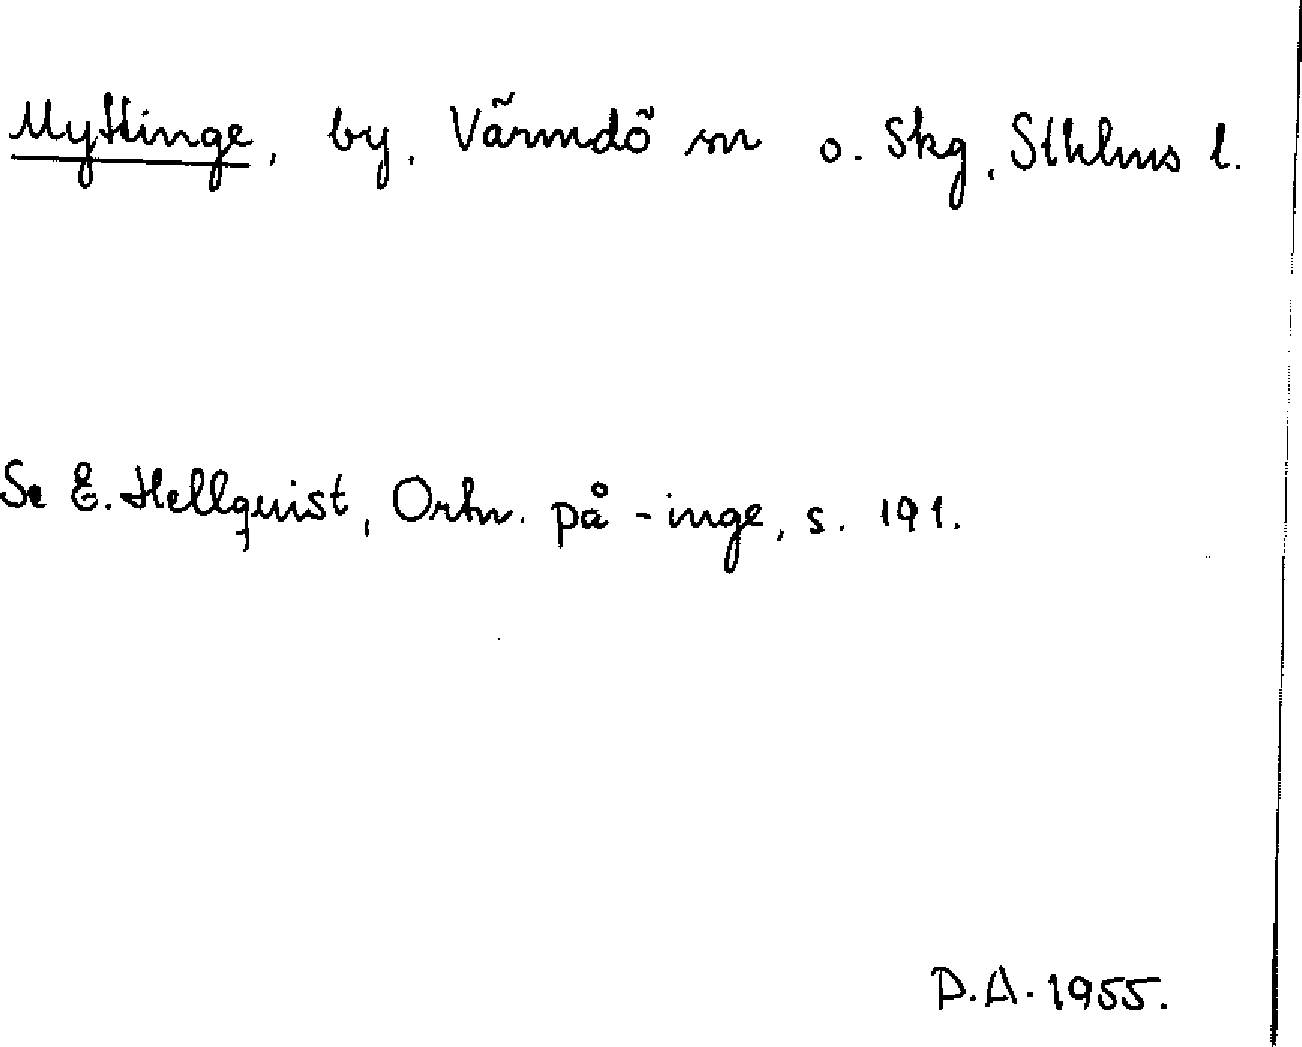 Myttinge, by, Värmdö sn o. Skg, Sthlms l.
Se E. Hellquist, Ortn. på -inge, s. 191.
D.A. 1955.